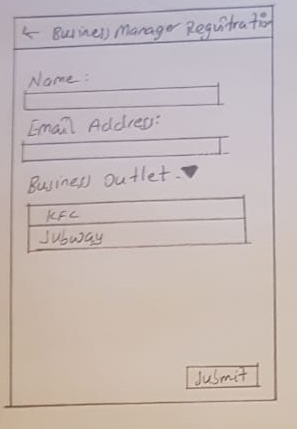 ← Business Manager Registration
Name:
Email Address:
Business Outlet.▼
KFC
Subway
Submit